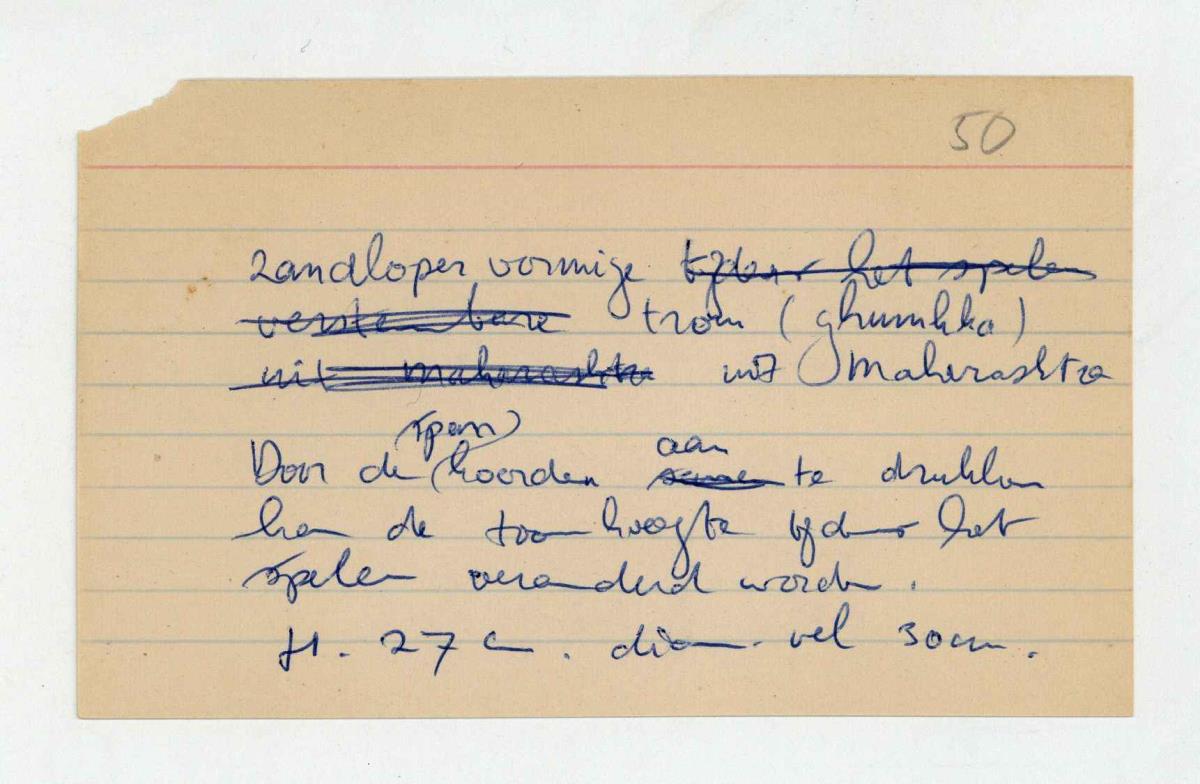 50
zandloper vormige ~~tijdens het spelen~~
~~verstembare~~ trom (ghumkka)
~~uit maharashtra~~ uit Maharashtra
span
Door de koorden aan ~~samen~~ te drukken
kan de toonhoogte tijdens het
spelen veranderd worden.
H. 27 cm. diam. vel 30cm.